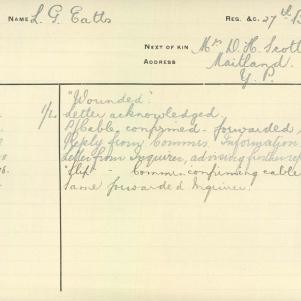 NAME L. G. Eatts REG. &C. 27th B
NEXT OF KIN Mrs D. H. Scott
ADDRESS Maitland.
Y. P.
"Wounded".
1/2. Letter acknowledged.
confirmed - forwarded
Reply from Commis. Information
Letter from Inquirer, advising further rep
6. "Slip" - Commis. confirming cable
Same forwarded Inquirer.